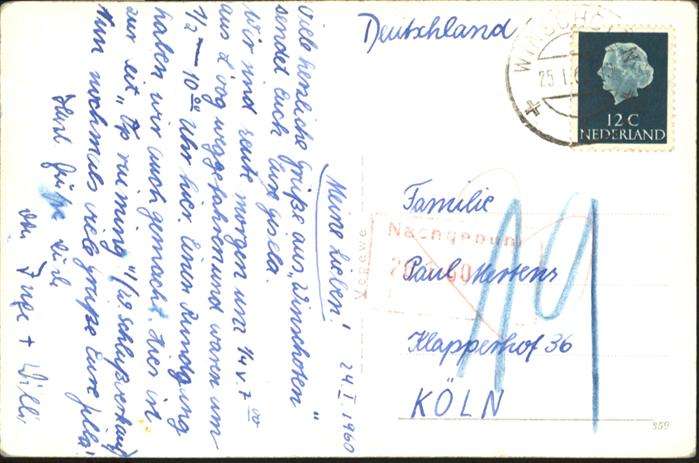 Deutschland
WINSCHOTEN
25.1.6
12 C
NEDERLAND
24.I.1960
Meine Lieben!
Viele herzliche Grüße aus „Winschoten"
sendet Euch Eure Gisela.
Wir sind heute morgen um 1/4 v. 7 00
aus Loog weggefahren und waren um
1/2 10 00 Uhr hier. Einen Rundgang
haben wir auch gemacht. Hier ist
zur Zeit „Opruiming"
Nun nochmals viele Grüße Eure
Grüße Euch
Inge + Willi
Familie
Paul Mertens
Klapperhof 36
KÖLN
Nachgebühr
19
359